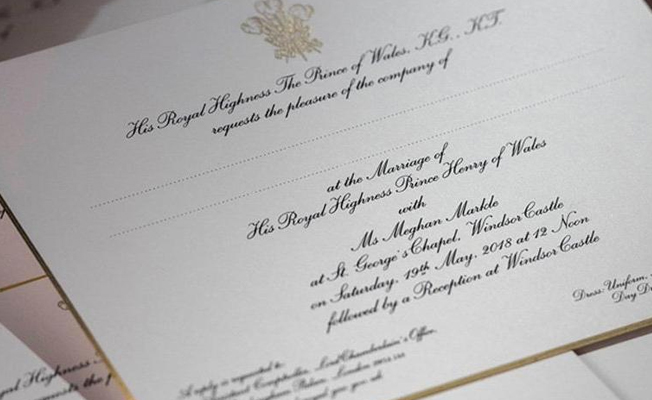 His Royal Highness The Prince of Wales, K.G., K.T.
requests the pleasure of the company of
at the Marriage of
His Royal Highness Prince Henry of Wales
with
Ms Meghan Markle
at St. George's Chapel, Windsor Castle
on Saturday, 19th May, 2018 at 12 Noon
followed by a Reception at Windsor Castle
Dress: Uniform,
Day
A reply is requested to:
Comptroller, Lord Chamberlain's Office,
Palace, London
Royal Highness